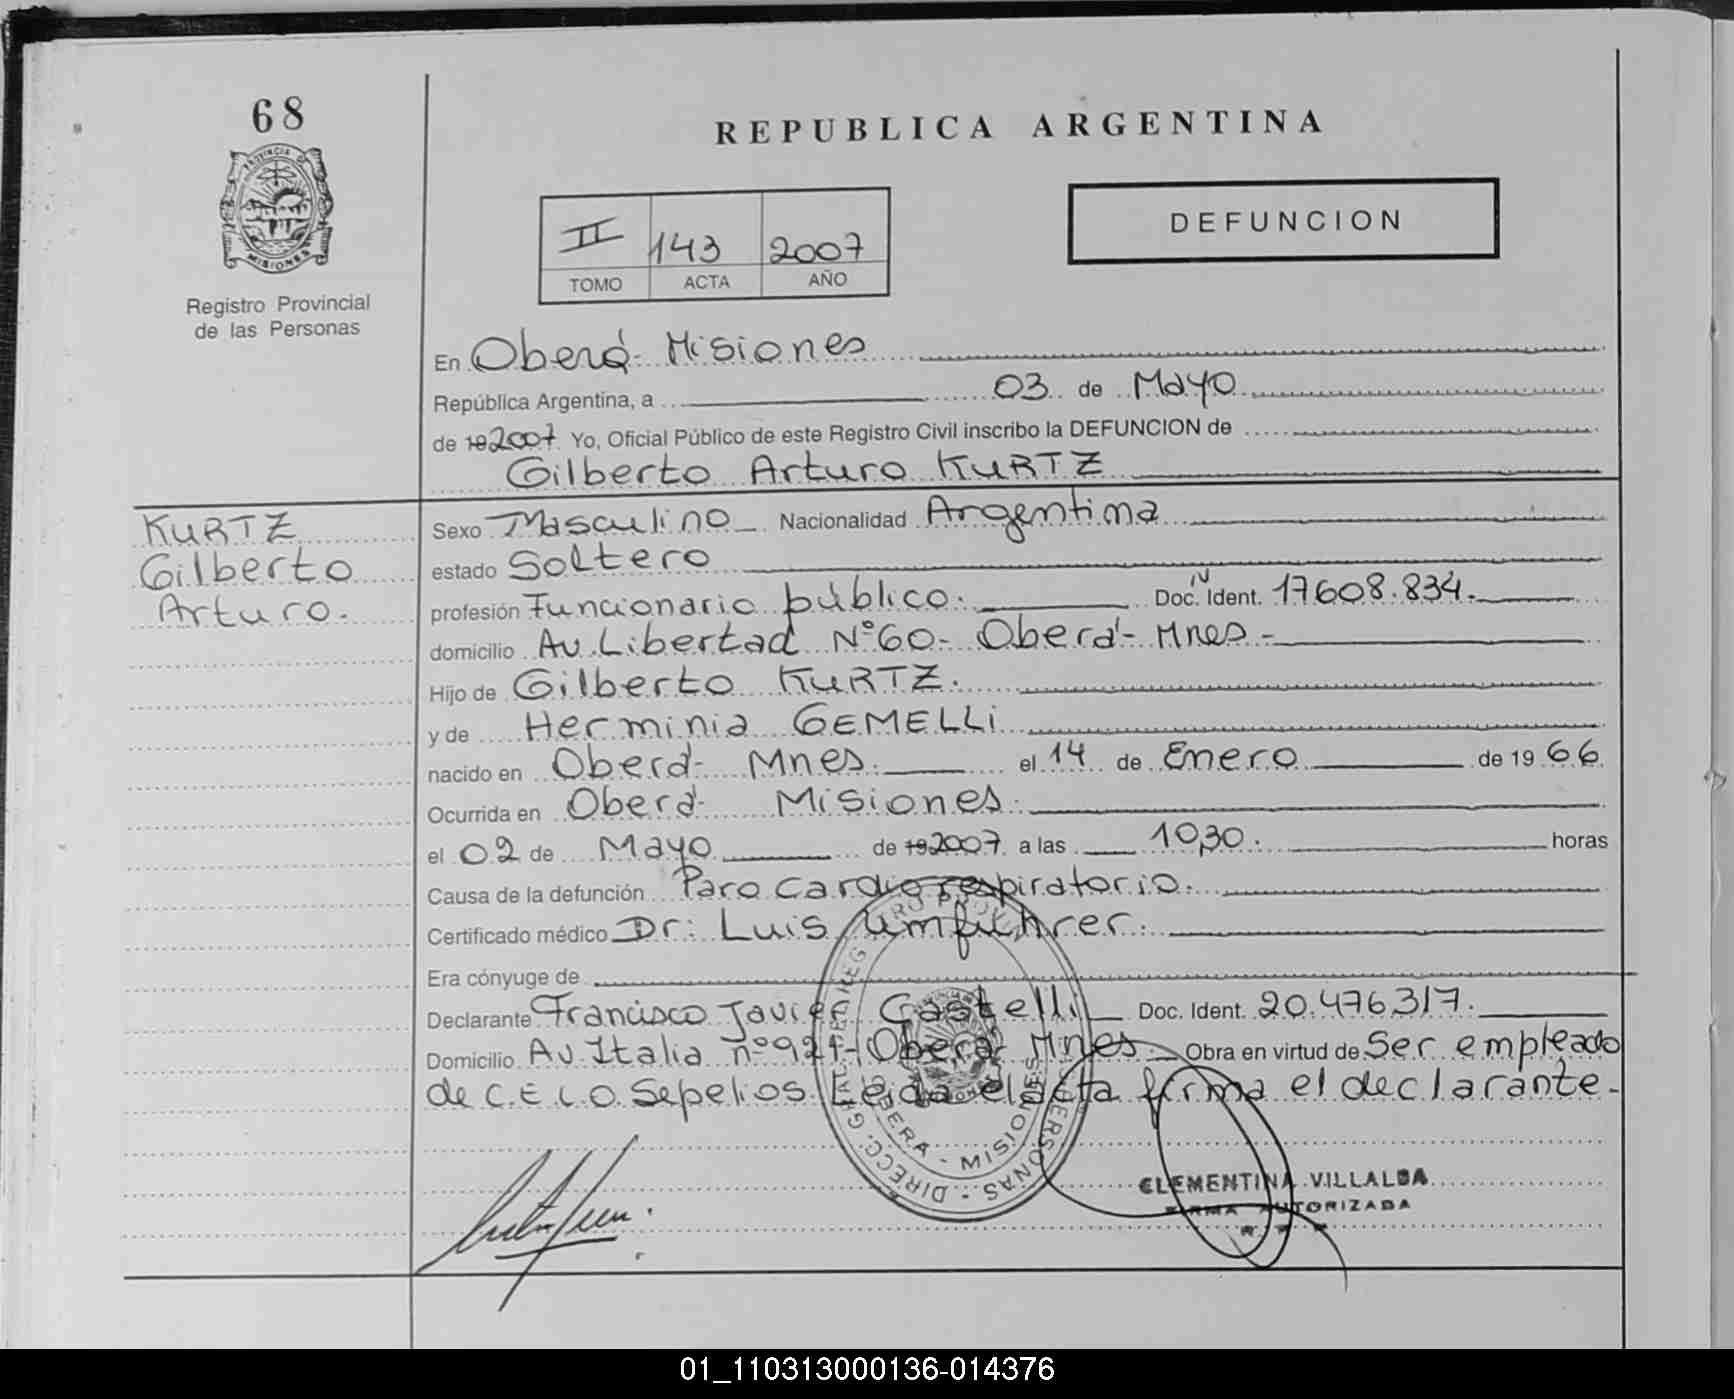 68
PROVINCIA DE
MISIONES
Registro Provincial
de las Personas
REPUBLICA ARGENTINA
II 143 2007
TOMO ACTA AÑO
DEFUNCION
En Oberá- Misiones
República Argentina, a 03 de Mayo
de 19 2007 Yo, Oficial Público de este Registro Civil inscribo la DEFUNCION de
Gilberto Arturo KURTZ
KURTZ
Gilberto
Arturo.
Sexo Masculino Nacionalidad Argentina
estado Soltero
profesión Funcionario público. Doc. Ident. 17608.834.
domicilio Av Libertad Nº60- Oberá- Mnes-
Hijo de Gilberto KURTZ.
y de Herminia GEMELLI
nacido en Oberá- Mnes. el 14 de Enero de 1966
Ocurrida en Oberá- Misiones.
el 02 de Mayo de 19 2007 a las 10,30. horas
Causa de la defunción Paro Cardiorespiratorio.
Certificado médico Dr: Luis
Era cónyuge de
Declarante Francisco Javier Gastelli Doc. Ident. 20.476.317.
Domicilio Av Italia nº921- Oberá- Mnes Obra en virtud de Ser empleado
de C.E.L.O. Sepelios. Leida el acta firma el declarante-
OBERA - MISIONES
CLEMENTINA VILLALBA
FIRMA AUTORIZADA
01_110313000136-014376